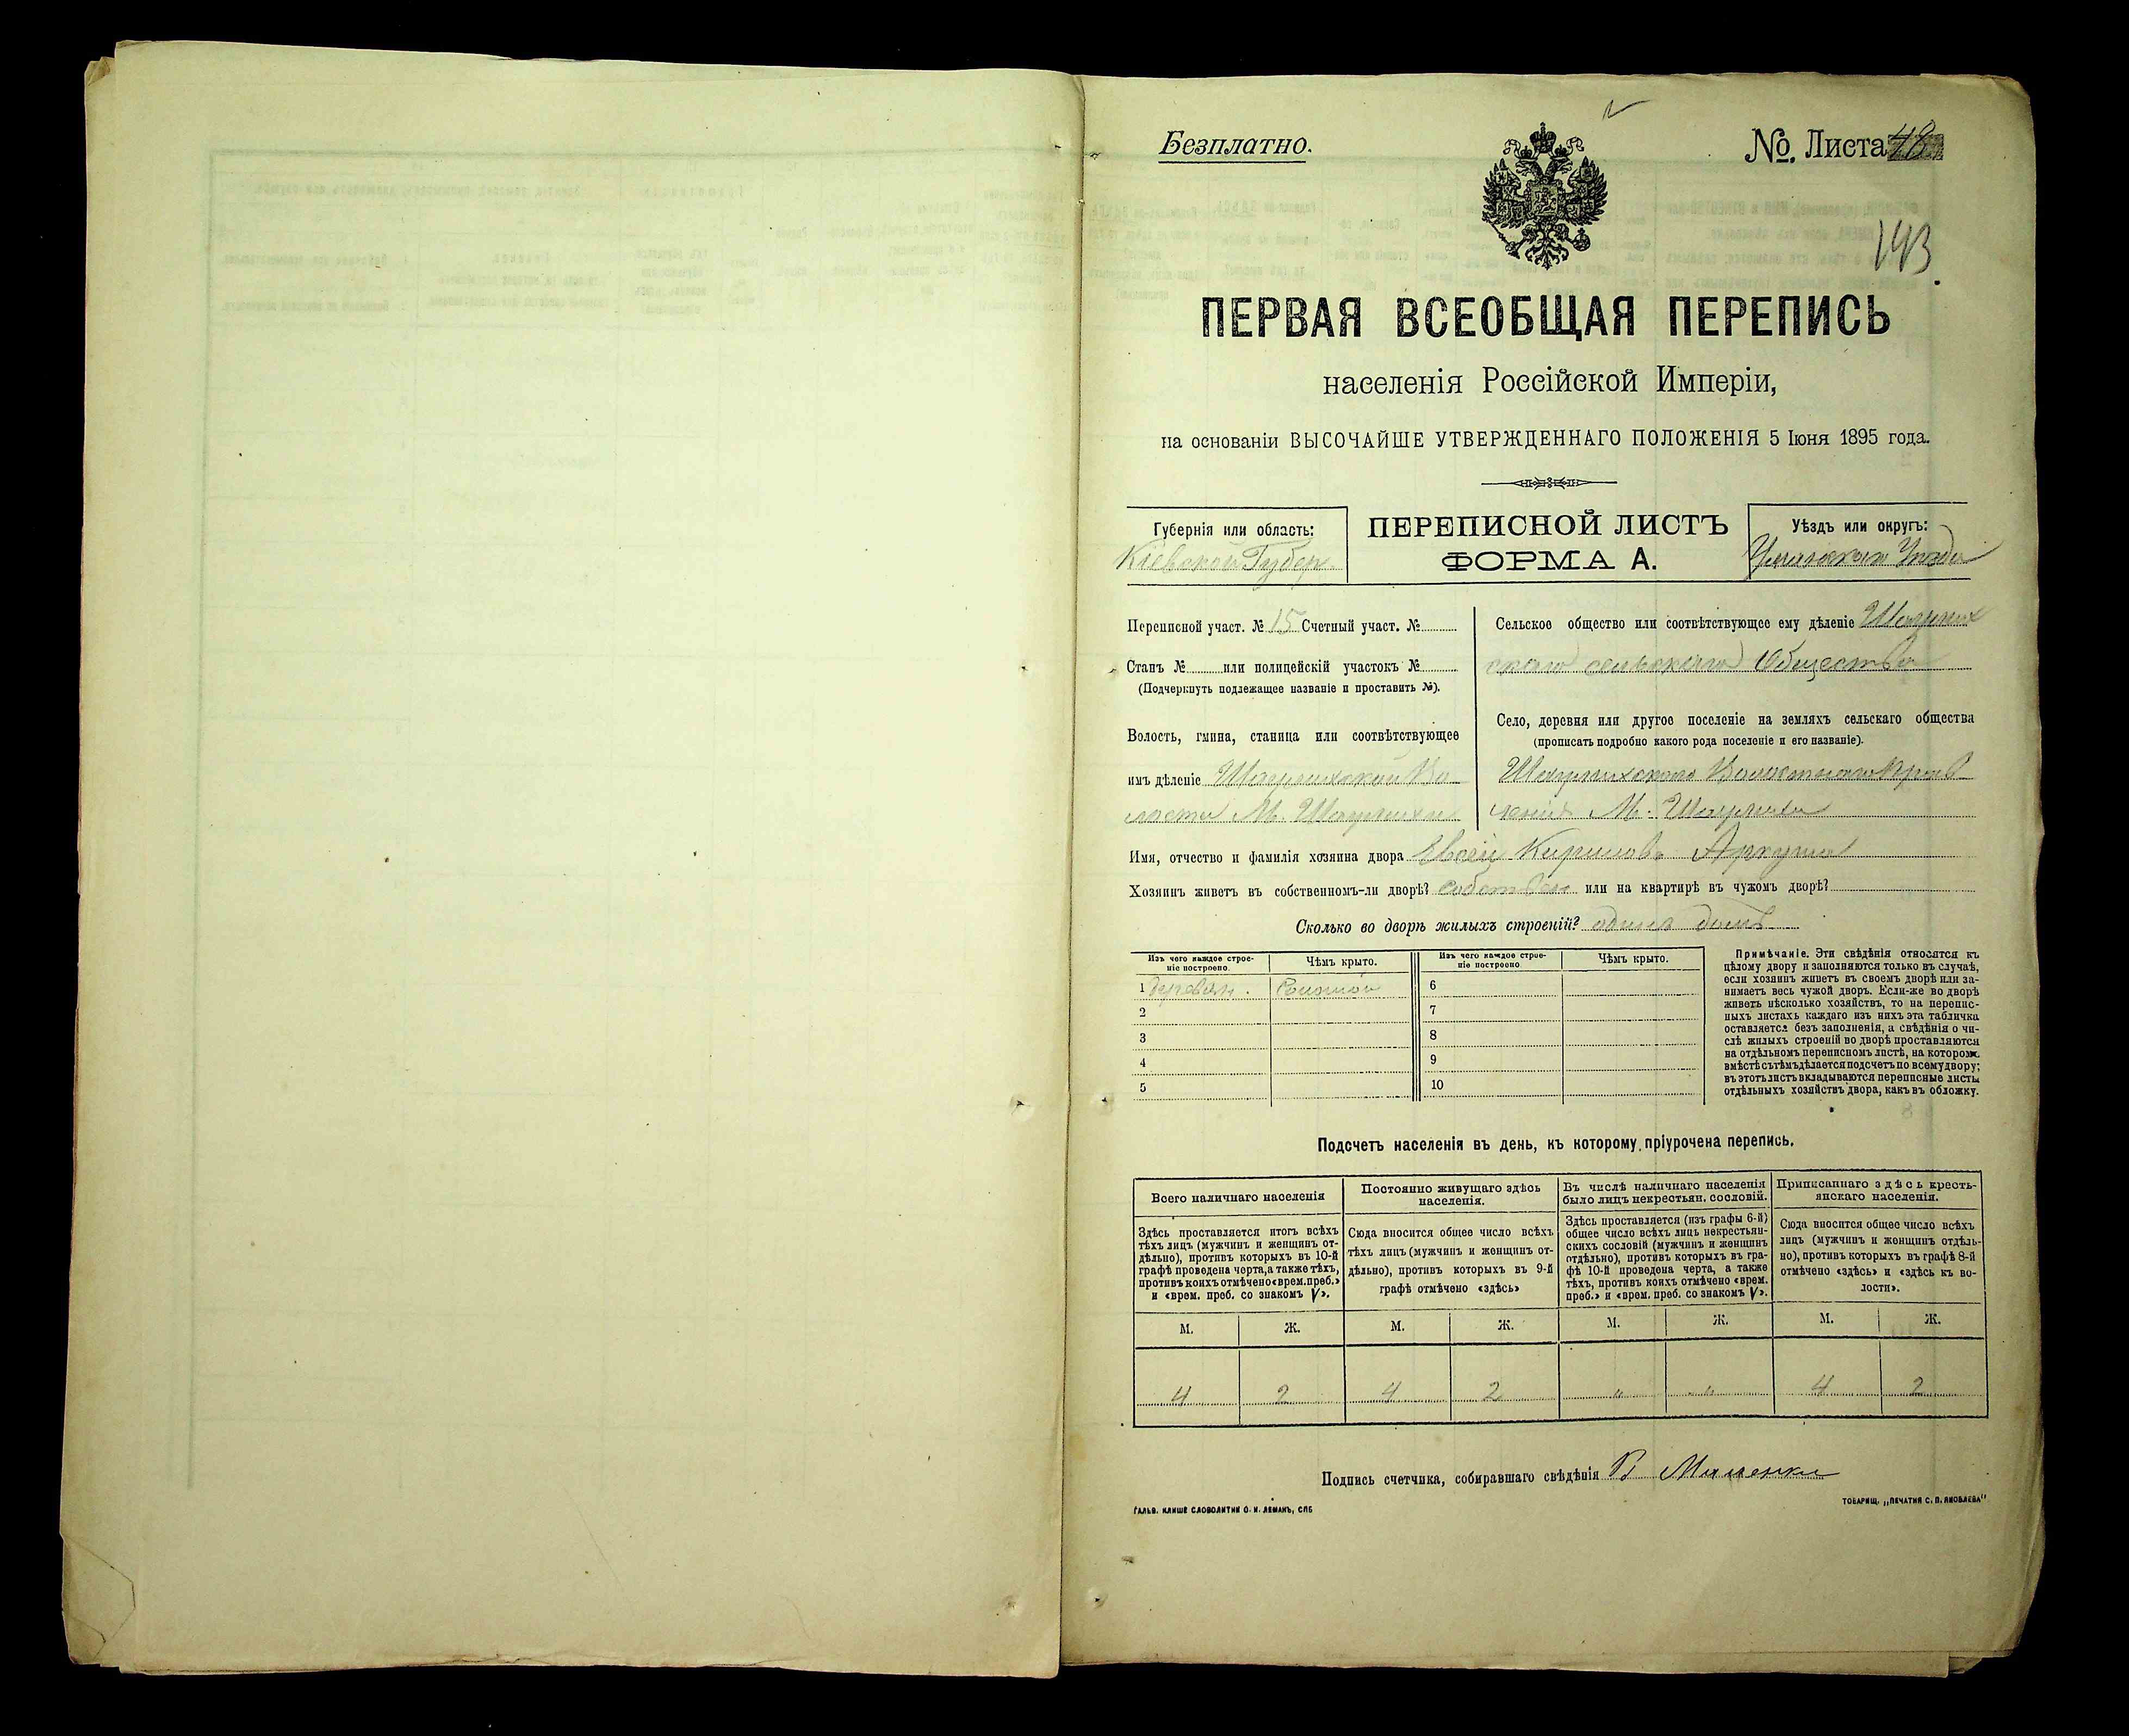 Безплатно.
№. Листа 48
143
ПЕРВАЯ ВСЕОБЩАЯ ПЕРЕПИСЬ
населенія Россійской Имперіи,
на основаніи ВЫСОЧАЙШЕ УТВЕРЖДЕННАГО ПОЛОЖЕНІЯ 5 Іюня 1895 года.
Губернія или область:
Кіевской Губер.
ПЕРЕПИСНОЙ ЛИСТЪ
ФОРМА А.
Уѣздъ или округъ:
Уманскаго Уезда
Переписной участ. № 15 Счетный участ. №
Станъ № или полицейскій участокъ №
(Подчеркнуть подлежащее названіе и проставить №).
Волость, гмина, станица или соотвѣтствующее
имъ дѣленіе Шаулихской Во
лости М. Шаулихи
Сельское общество или соотвѣтствующее ему дѣленіе Шаулих
скаго сельскаго Общества
Село, деревня или другое поселеніе на земляхъ сельскаго общества
(прописать подробно какого рода поселеніе и его названіе).
Шаулихскаго Волостнаго Прав
ленія М. Шаулиха
Имя, отчество и фамилія хозяина двора Евсей Кирилов
Хозяинъ живетъ въ собственномъ-ли дворѣ? собствен или на квартирѣ въ чужомъ дворѣ?
Сколько во дворѣ жилыхъ строеній? одинъ домъ
Изъ чего каждое строе-
ніе построено.
Чѣмъ крыто.
Изъ чего каждое строе-
ніе построено.
Чѣмъ крыто.
1 деревян. Соломой
2
3
4
5
6
7
8
9
10
Примѣчаніе. Эти свѣдѣнія относятся къ
цѣлому двору и заполняются только въ случаѣ,
если хозяинъ живетъ въ своемъ дворѣ или за-
нимаетъ весь чужой дворъ. Если-же во дворѣ
живетъ нѣсколько хозяйствъ, то на перепис-
ныхъ листахъ каждаго изъ нихъ эта табличка
оставляется безъ заполненія, а свѣдѣнія о чи-
слѣ жилыхъ строеній во дворѣ проставляются
на отдѣльномъ переписномъ листѣ, на которомъ
вмѣстѣ съ тѣмъ дѣлается подсчетъ по всему двору;
въ этотъ листъ вкладываются переписные листы
отдѣльныхъ хозяйствъ двора, какъ въ обложку.
Подсчетъ населенія въ день, къ которому пріурочена перепись.
Всего наличнаго населенія
Здѣсь проставляется итогъ всѣхъ
тѣхъ лицъ (мужчинъ и женщинъ от-
дѣльно), противъ которыхъ въ 10-й
графѣ проведена черта, а также тѣхъ,
противъ коихъ отмѣчено «врем. преб.»
и «врем. преб. со знакомъ V».
Постоянно живущаго здѣсь
населенія.
Сюда вносится общее число всѣхъ
тѣхъ лицъ (мужчинъ и женщинъ от-
дѣльно), противъ которыхъ въ 9-й
графѣ отмѣчено «здѣсь»
Въ числѣ наличнаго населенія
было лицъ некрестьян. сословій.
Здѣсь проставляется (изъ графы 6-й)
общее число всѣхъ лицъ некрестьян-
скихъ сословій (мужчинъ и женщинъ
отдѣльно), противъ которыхъ въ гра-
фѣ 10-й проведена черта, а также
тѣхъ, противъ коихъ отмѣчено «врем.
преб.» и «врем. преб. со знакомъ V».
Приписаннаго здѣсь кресть-
янскаго населенія.
Сюда вносится общее число всѣхъ
лицъ (мужчинъ и женщинъ отдѣль-
но), противъ которыхъ въ графѣ 8-й
отмѣчено «здѣсь» и «здѣсь къ во-
лости».
М. Ж. М. Ж. М. Ж. М. Ж.
4 2 4 2 " " 4 2
Подпись счетчика, собиравшаго свѣдѣнія
ГАЛЬВ. КЛИШЕ СЛОВОЛИТНИ О. И. ЛЕМАНЪ, СПБ
ТОВАРИЩ. „ПЕЧАТНЯ С. П. ЯКОВЛЕВА"